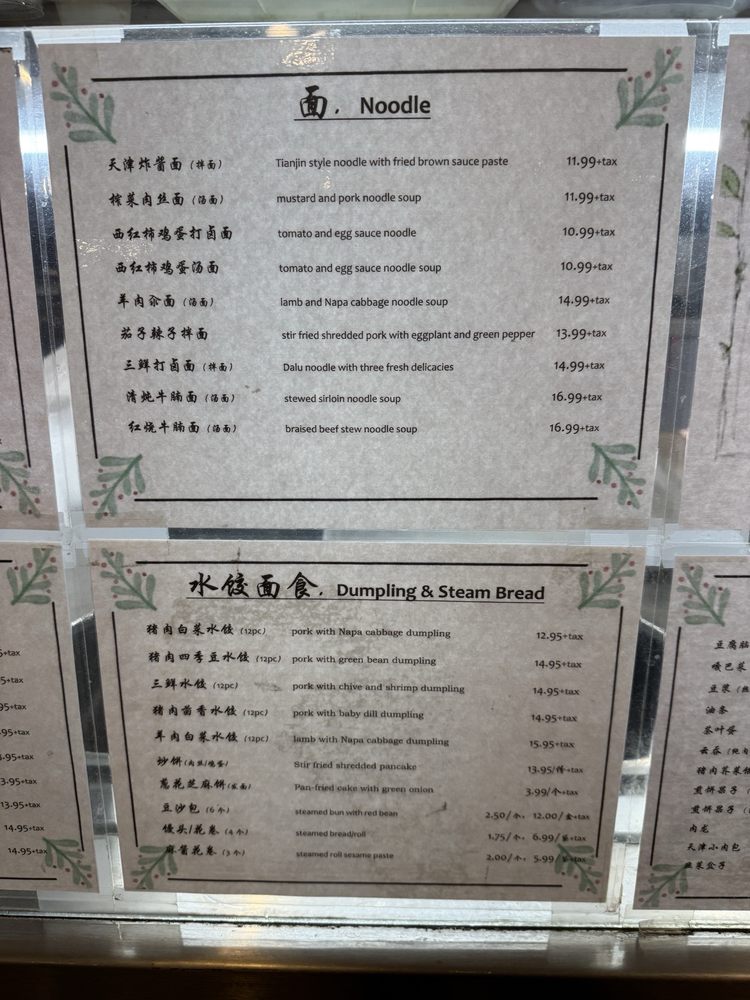 面. Noodle
天津炸酱面 (拌面) Tianjin style noodle with fried brown sauce paste 11.99+tax
榨菜肉丝面 (汤面) mustard and pork noodle soup 11.99+tax
西红柿鸡蛋打卤面 tomato and egg sauce noodle 10.99+tax
西红柿鸡蛋汤面 tomato and egg sauce noodle soup 10.99+tax
羊肉汆面 (汤面) lamb and Napa cabbage noodle soup 14.99+tax
茄子辣子拌面 stir fried shredded pork with eggplant and green pepper 13.99+tax
三鲜打卤面 (拌面) Dalu noodle with three fresh delicacies 14.99+tax
清炖牛腩面 (汤面) stewed sirloin noodle soup 16.99+tax
红烧牛腩面 (汤面) braised beef stew noodle soup 16.99+tax
水饺面食. Dumpling & Steam Bread
猪肉白菜水饺 (12pc) pork with Napa cabbage dumpling 12.95+tax
猪肉四季豆水饺 (12pc) pork with green bean dumpling 14.95+tax
三鲜水饺 (12pc) pork with chive and shrimp dumpling 14.95+tax
猪肉茴香水饺 (12pc) pork with baby dill dumpling 14.95+tax
羊肉白菜水饺 (12pc) lamb with Napa cabbage dumpling 15.95+tax
炒饼 (肉丝/鸡蛋) Stir fried shredded pancake 13.95/份+tax
葱花芝麻饼 (发面) Pan-fried cake with green onion 3.99/个+tax
豆沙包 (6个) steamed bun with red bean 2.50/个, 12.00/盒+tax
馒头/花卷 (4个) steamed bread/roll 1.75/个, 6.99/+tax
麻酱花卷 (3个) steamed roll sesame paste 2.00/个, 5.99/+tax
5+tax
.95+tax
95+tax
.95+tax
3.95+tax
13.95+tax
14.95+tax
14.95+tax
豆腐脑
嘎巴菜
豆浆
油条
茶叶蛋
云吞
猪肉荠菜
煎饼果子
煎饼果子
肉龙
天津小肉包
韭菜盒子